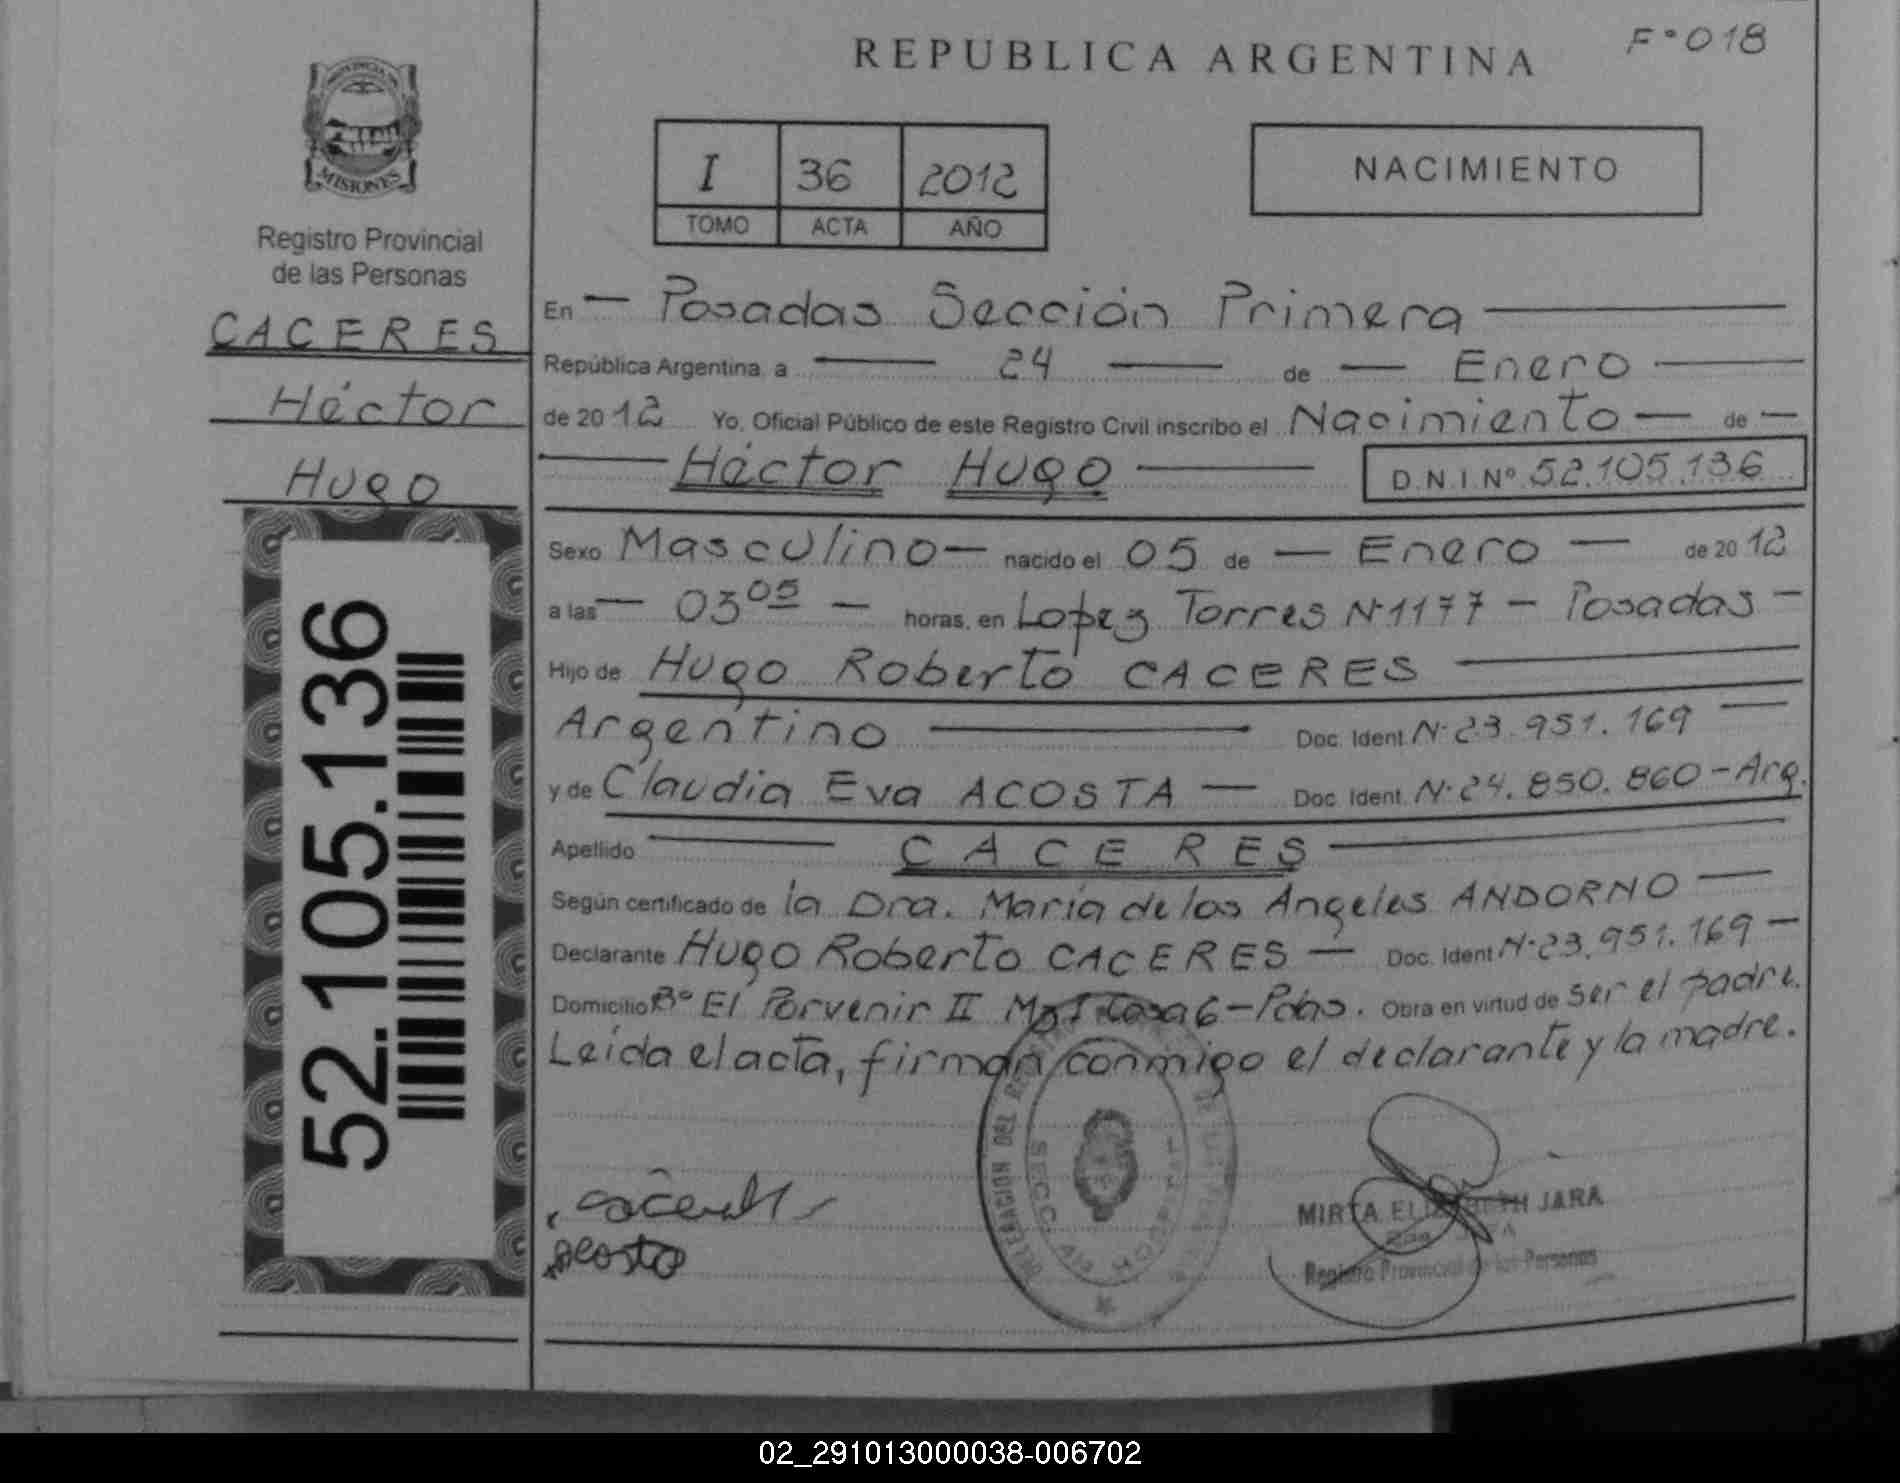 REPUBLICA ARGENTINA
F°018
MISIONES
Registro Provincial
de las Personas
CACERES
Héctor
Hugo
52.105.136
I 36 2012
TOMO ACTA AÑO
NACIMIENTO
En — Posadas Sección Primera
República Argentina, a — 24 — de — Enero
de 2012 Yo, Oficial Público de este Registro Civil inscribo el Nacimiento — de —
Héctor Hugo — D.N.I. Nº 52.105.136
Sexo Masculino — nacido el 05 de — Enero — de 2012
a las — 03 05 — horas, en Lopez Torres N°1177 — Posadas —
Hijo de Hugo Roberto CACERES
Argentino — Doc. Ident. N°23.951.169 —
y de Claudia Eva ACOSTA — Doc. Ident. N°24.850.860-Arg.
Apellido — CACERES —
Según certificado de la Dra. María de los Angeles ANDORNO —
Declarante Hugo Roberto CACERES — Doc. Ident. N°23.951.169 —
Domicilio B° El Porvenir II Mz I Casa 6-Pdas. Obra en virtud de ser el padre.
Leída el acta, firman conmigo el declarante y la madre.
DELEGACION DEL
SECC. HOSPITAL
Acosta
MIRTA JARA
Registro Provincial de las Personas
02_291013000038-006702